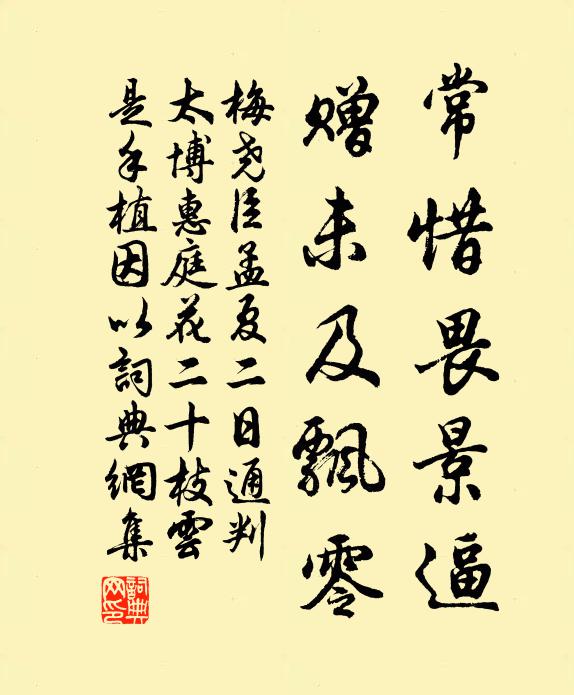 常惜畏景逼
赠未及飘零
梅尧臣孟夏二日通判
太博惠庭花二十枝雲
是手植因以詞典網集
詞典網印